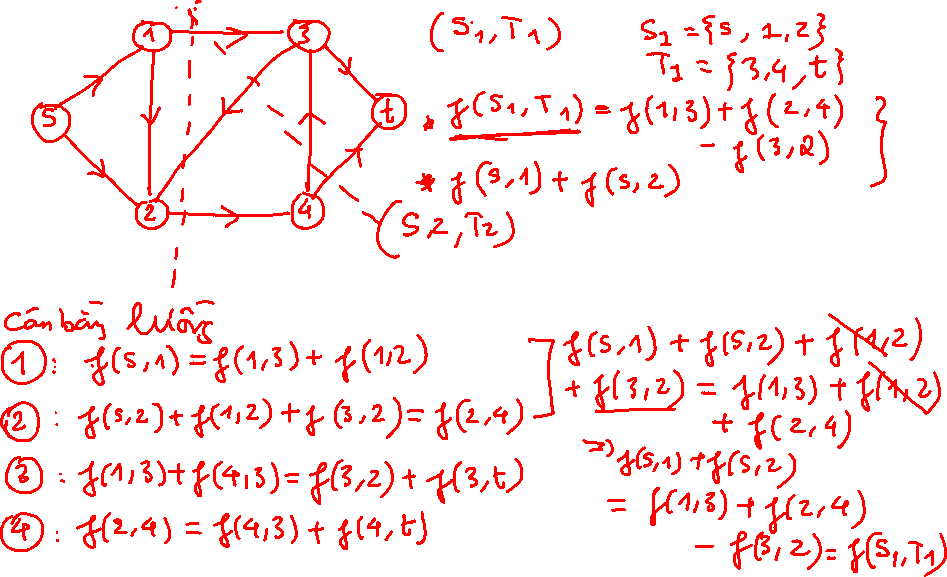 1
3
S
t
2
4
(S1,T1)
S1 = {s, 1, 2}
T1 = {3,4,t}
* f(S1,T1) = f(1,3) + f(2,4)
- f(3,2)
* f(s,1) + f(s,2)
(S2,T2)
Cân bằng luồng
1: f(s,1) = f(1,3) + f(1,2)
2: f(s,2) + f(1,2) + f(3,2) = f(2,4)
3: f(1,3) + f(4,3) = f(3,2) + f(3,t)
4: f(2,4) = f(4,3) + f(4,t)
f(s,1) + f(s,2) + f(1,2)
+ f(3,2) = f(1,3) + f(1,2)
+ f(2,4)
=> f(s,1) + f(s,2)
= f(1,3) + f(2,4)
- f(3,2) = f(S1,T1)